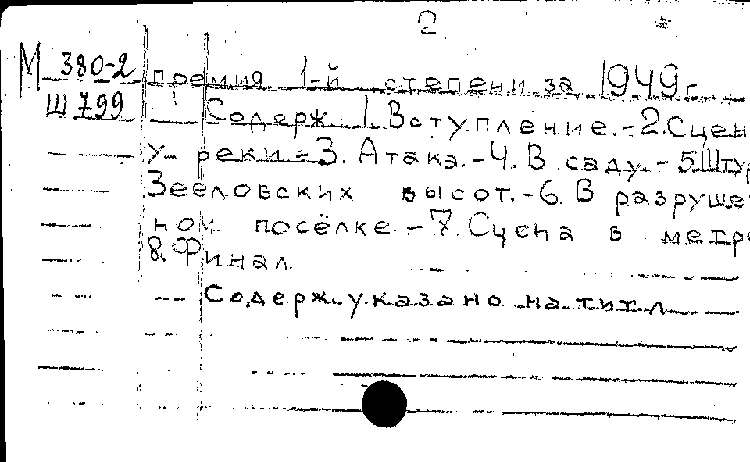 2
М 380-2 премия 1-й степени за 1949 г.
Ш 799 Содерж. 1. Вступление. - 2. Сцен
у реки - 3. Атака. - 4. В саду. - 5. Штур
Зееловских высот. - 6. В разруше
ном посёлке - 7. Сцена в метро
8. Финал
Содерж. указано на тит. л